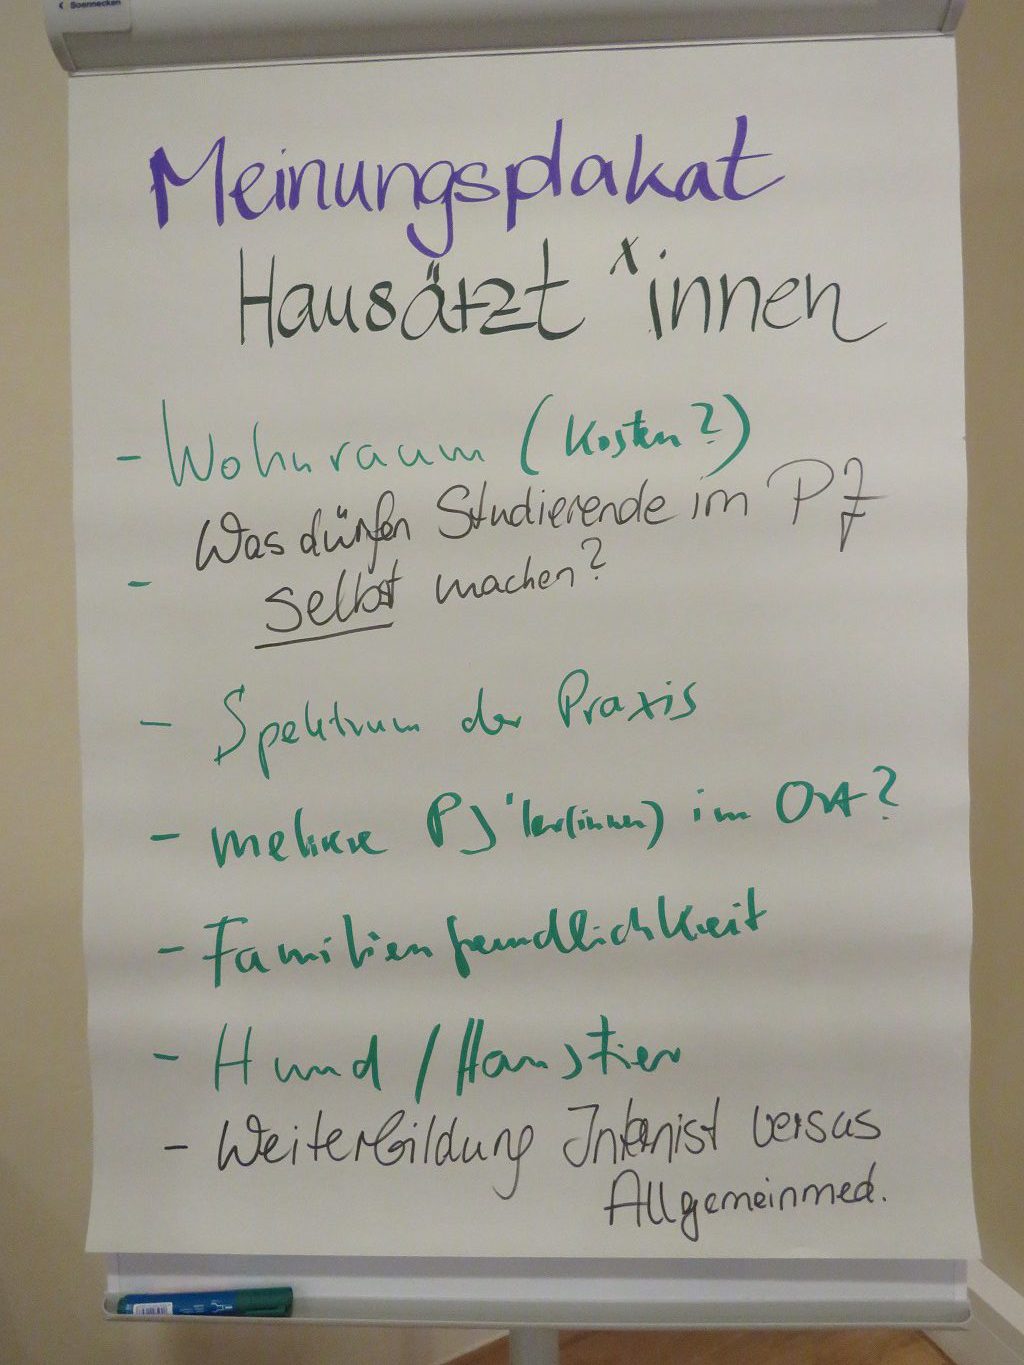 Soennecken
Meinungsplakat
Hausärzt*innen
- Wohnraum (Kosten?)
- Was dürfen Studierende im PJ
selbst machen?
- Spektrum der Praxis
- mehrere PJ'ler(innen) im Ort?
- Familienfreundlichkeit
- Hund / Haustier
- Weiterbildung Internist versus
Allgemeinmed.